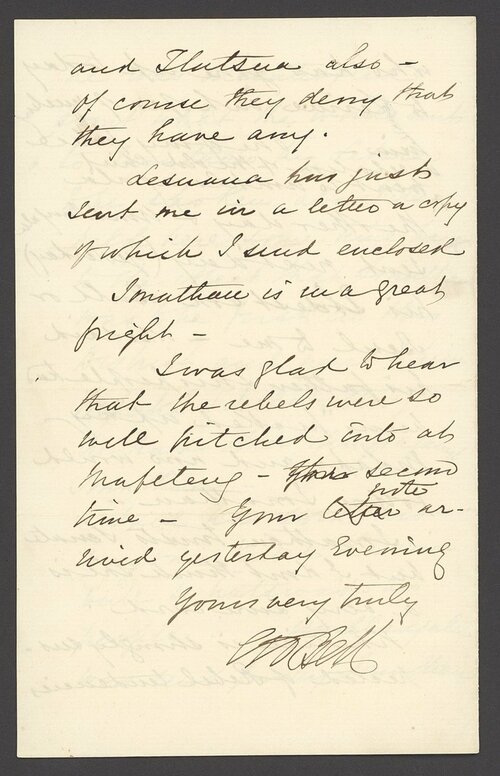 and Tlutsua also -
of course they deny that
they have any.
Lesuana has just
sent me in a letter a copy
of which I send enclosed
Jonathan is in a great
fright -
I was glad to hear
that the rebels were so
well pitched into at
Mafeteng - second
note
time - Your letter ar-
rived yesterday Evening
Yours very truly
Bell